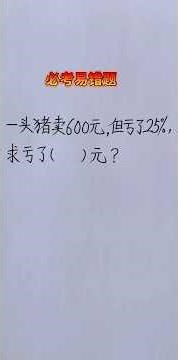 必考易错题
一头猪卖600元,但亏了25%,
求亏了( )元?